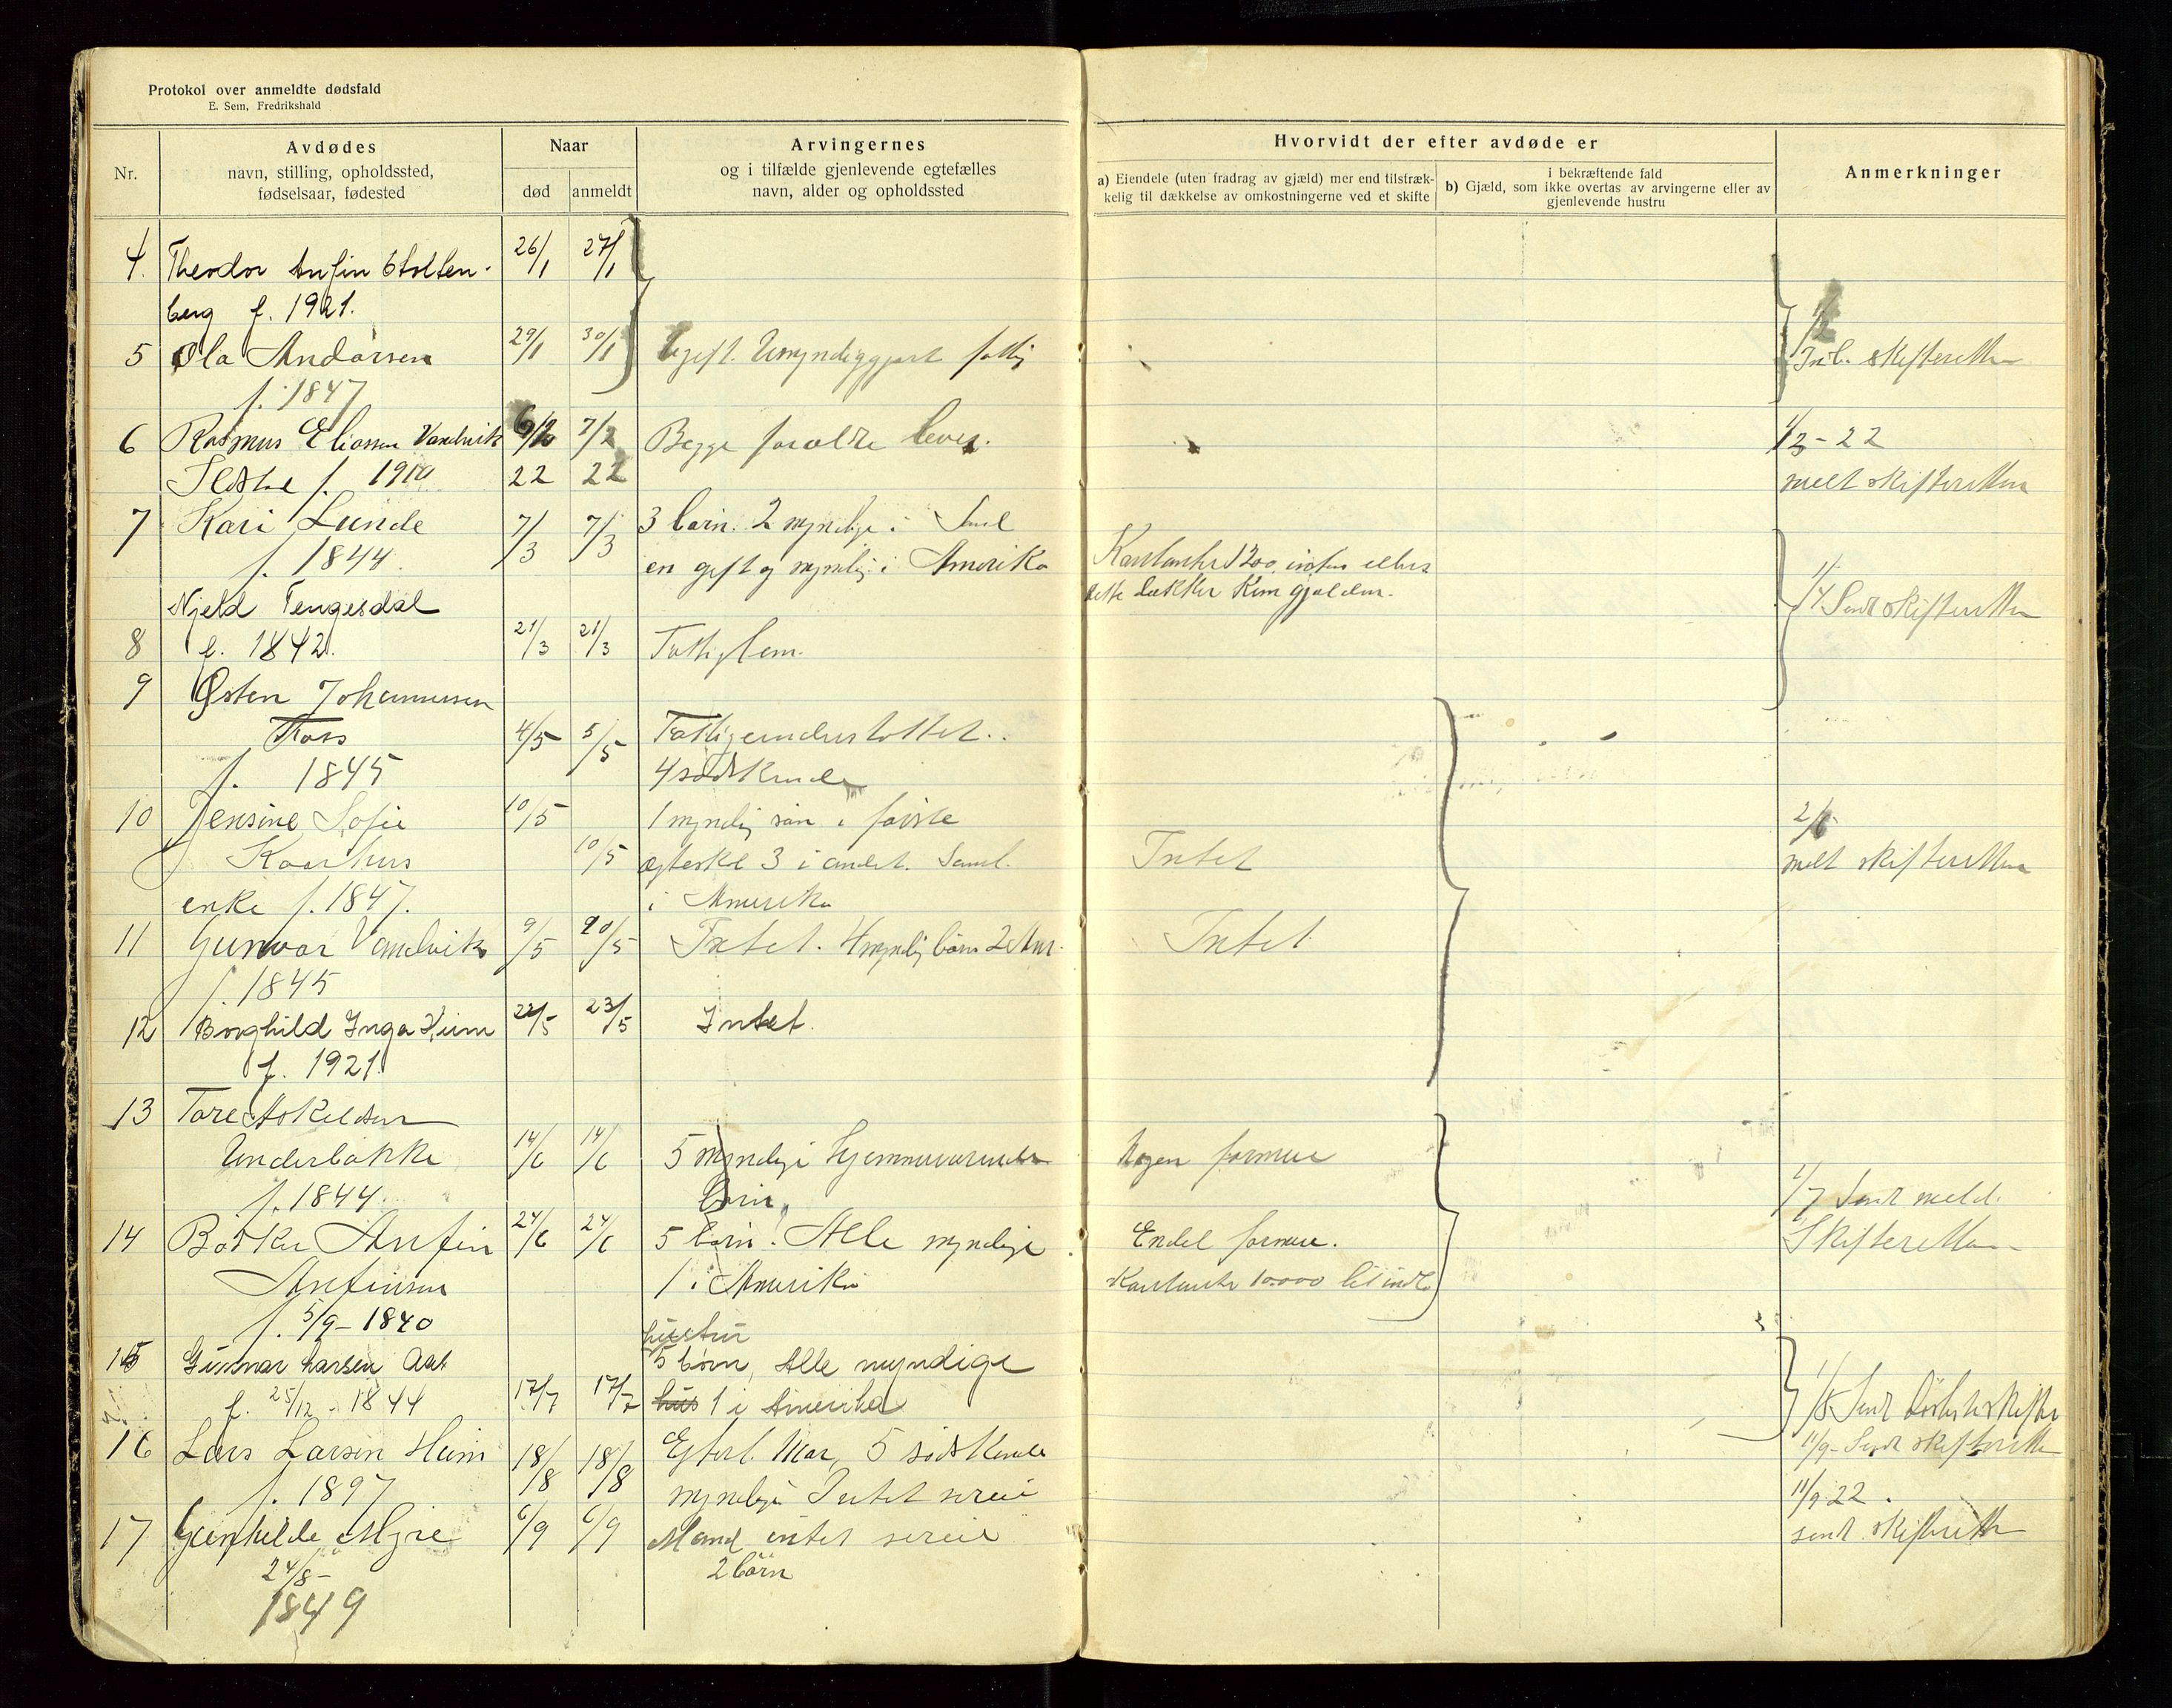 Protokol over anmeldte dødsfald
E. Sem, Fredrikshald
Nr.
Avdødes
navn, stilling, opholdssted,
fødselsaar, fødested
Naar
død
anmeldt
Arvingernes
og i tilfælde gjenlevende egtefælles
navn, alder og opholdssted
Hvorvidt der efter avdøde er
a) Eiendele (uten fradrag av gjæld) mer end tilstræk-
kelig til dækkelse av omkostningerne ved et skifte
i bekræftende fald
b) Gjæld, som ikke overtas av arvingerne eller av
gjenlevende hustru
Anmerkninger
4. Theodor Anfin Stolten- 26/1 27/1
berg f. 1921.
5 Ola Andersen 29/1 30/1 Ugift. Umyndiggjort fattig skifteretten
f. 1847
6 Rasmus Eliassen Vandvik 7/2 Begge forældre lever. 1/3-22
f. 1910 22 22 melt skifteretten
7 Kari Lunde 7/3 7/3 3 børn. 2 myndige i
f. 1844. en gift og myndig i Amerika 1200
dette dækker kun gjælden.
Njeld Tengesdal 1/4 Sendt skifteretten
8 f. 1842. 21/3 21/3 Fattiglem.
9 Østen Johannessen
4/5 5/5 Fattigunderstøttet.
f. 1845 4 sødskende
10 Jensine Sofie 10/5 1 myndig søn i første
Kaarhus 10/5 3 i andet. Samtl. Intet melt skifteretten
enke f. 1847. i Amerika
11 Gunvor Vandvik 9/5 20/5 Intet. 4 myndig børn 2 Am. Intet
f. 1845
12 Borghild Inga Heim 22/5 23/5 Intet.
f. 1921.
13 Tore Askeldsen
Underbakke 14/6 14/6 5 myndige hjemmeværende Nogen formue
f. 1844. børn 1/7 Sendt meld.
14 Anfin 24/6 24/6 5 børn. Alle myndige Endel formue. Skifteretten
Anfinsen 1 i Amerika 10.000
f. 5/9-1840
hustru
15 Gunnar Larsen 5 børn, Alle myndige
f. 25/12 - 1844 17/7 17/7 hus 1 i Amerika 1/8 Sendt
16 Lars Larsen Heim 18/8 18/8 Efterl. Mor, 5 sødskende 11/9- Sendt skifteretten
f. 1897 myndige Intet 11/9 22.
17 Gunhilde 6/9 6/9 Mand intet sendt skifteretten
24/8- 2 børn
1849